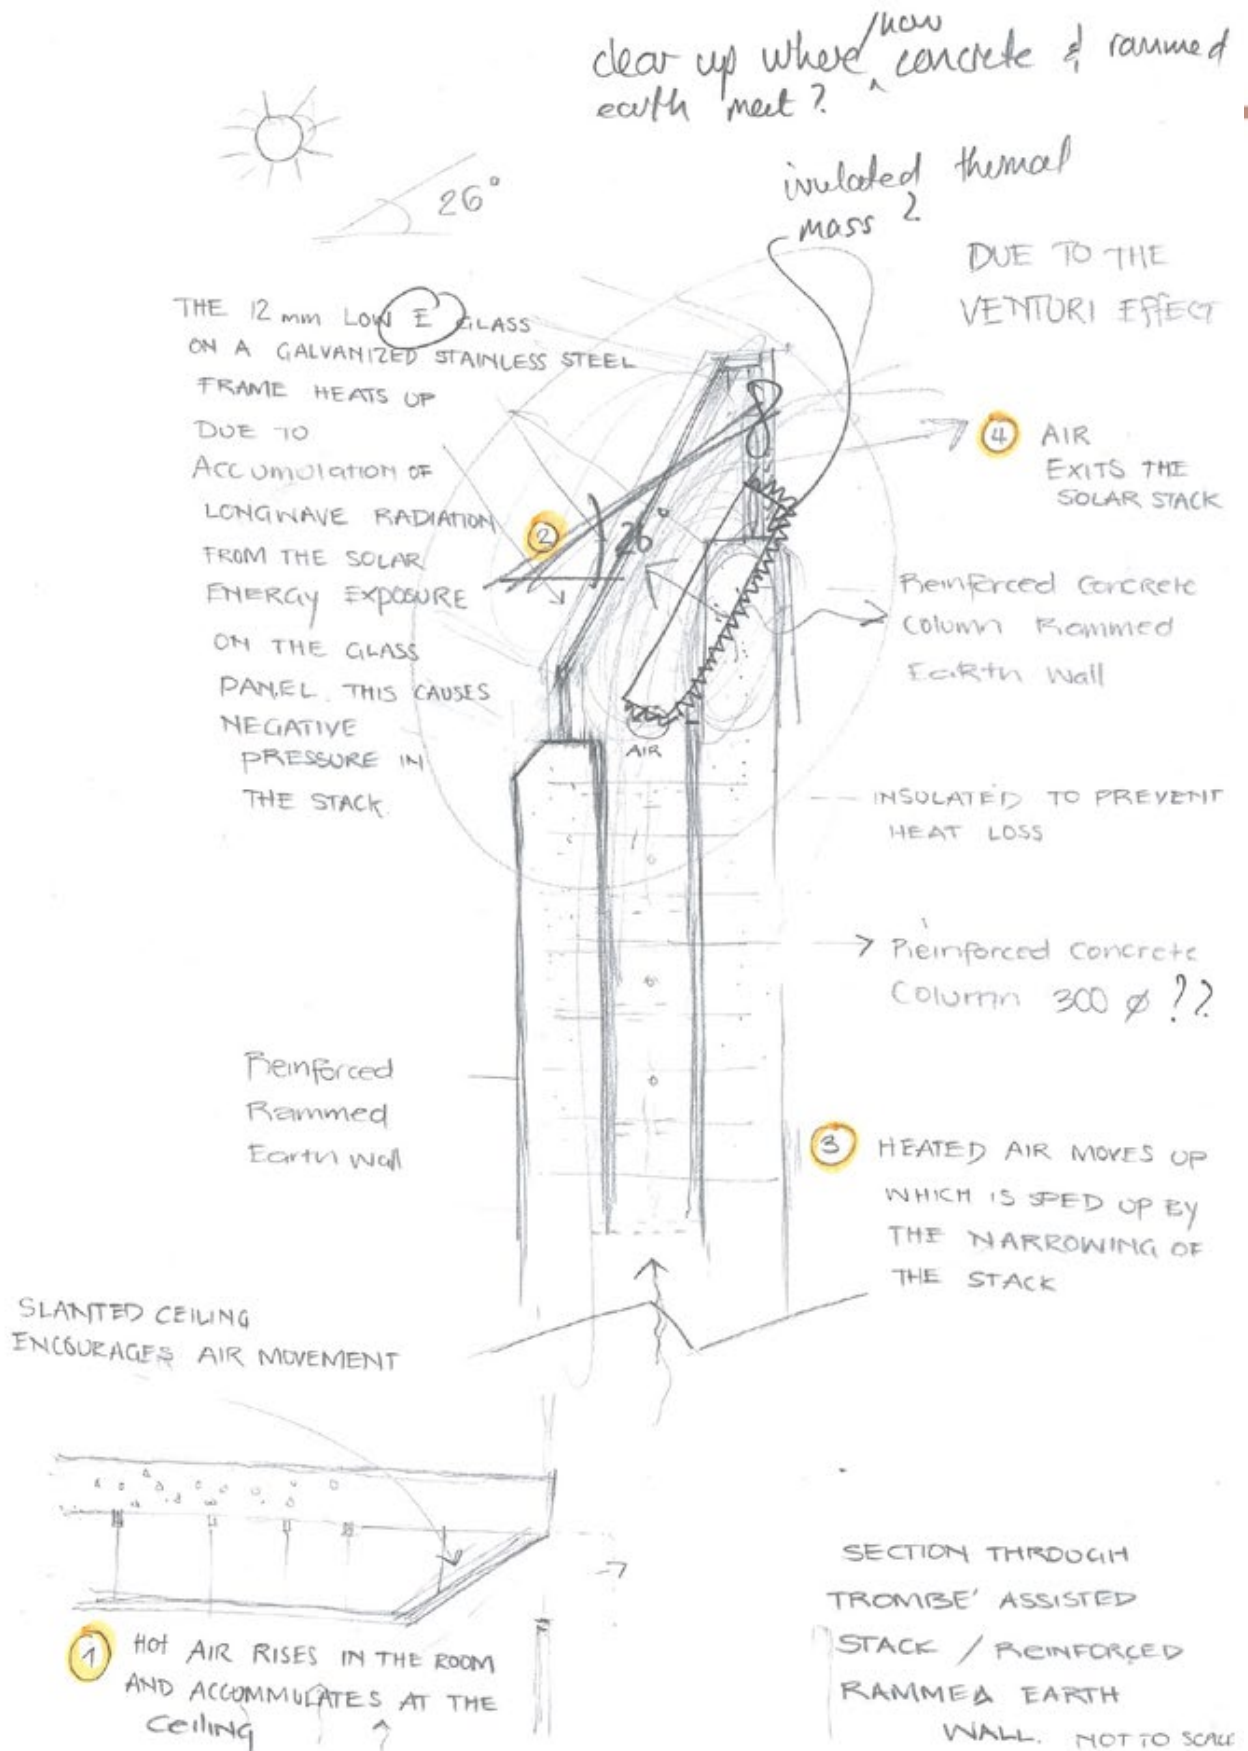 clear up where/how concrete & rammed
earth meet?
26°
insulated thermal
mass?
DUE TO THE
VENTURI EFFECT
THE 12 mm LOW E GLASS
ON A GALVANIZED STAINLESS STEEL
FRAME HEATS UP
DUE TO
ACCUMOLATION OF
LONGWAVE RADIATION
FROM THE SOLAR
ENERGY EXPOSURE
ON THE GLASS
PANEL. THIS CAUSES
NEGATIVE
PRESSURE IN
THE STACK.
2
26°
4 AIR
EXITS THE
SOLAR STACK
Reinforced Concrete
Column Rammed
Earth Wall
AIR
INSULATED TO PREVENT
HEAT LOSS
Reinforced Concrete
Column 300 ø ??
Reinforced
Rammed
Earth Wall
3 HEATED AIR MOVES UP
WHICH IS SPED UP BY
THE NARROWING OF
THE STACK
SLANTED CEILING
ENCOURAGES AIR MOVEMENT
1 HOT AIR RISES IN THE ROOM
AND ACCOMMULATES AT THE
CEILING
SECTION THROUGH
TROMBE' ASSISTED
STACK / REINFORCED
RAMMED EARTH
WALL. NOT TO SCALE